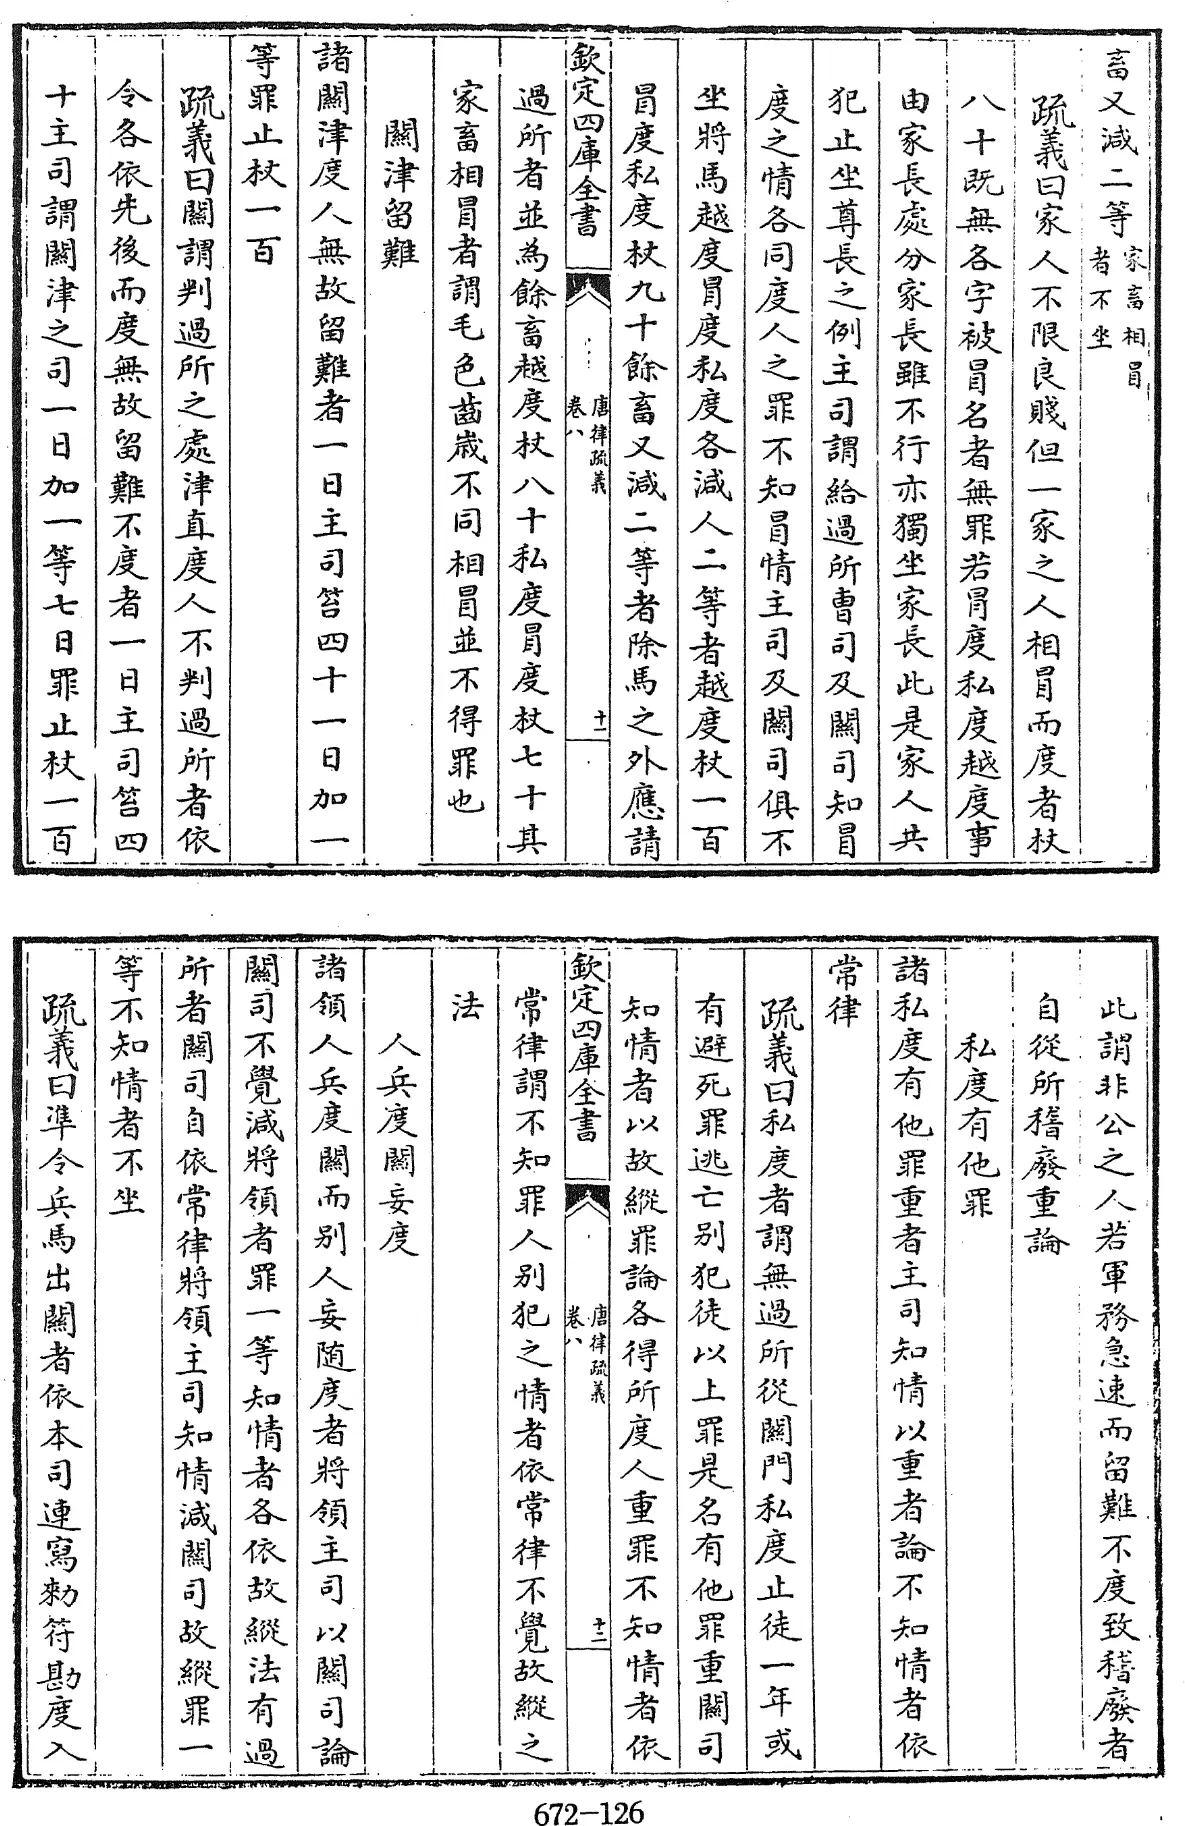 畜又減二等家畜相冒者不坐
疏義曰家人不限良賤但一家之人相冒而度者杖
八十既無各字被冒名者無罪若冒度私度越度事
由家長處分家長雖不行亦獨坐家長此是家人共
犯止坐尊長之例主司謂給過所曹司及關司知冒
度之情各同度人之罪不知冒情主司及關司俱不
坐將馬越度冒度私度各減人二等者越度杖一百
冒度私度杖九十餘畜又減二等者除馬之外應請
欽定四庫全書
唐律疏義
卷八
十一
過所者並為餘畜越度杖八十私度冒度杖七十其
家畜相冒者謂毛色齒歲不同相冒並不得罪也
關津留難
諸關津度人無故留難者一日主司笞四十一日加一
等罪止杖一百
疏義曰關謂判過所之處津直度人不判過所者依
令各依先後而度無故留難不度者一日主司笞四
十主司謂關津之司一日加一等七日罪止杖一百
此謂非公之人若軍務急速而留難不度致稽廢者
自從所稽廢重論
私度有他罪
諸私度有他罪重者主司知情以重者論不知情者依
常律
疏義曰私度者謂無過所從關門私度止徒一年或
有避死罪逃亡別犯徒以上罪是名有他罪重關司
知情者以故縱罪論各得所度人重罪不知情者依
欽定四庫全書
唐律疏義
卷八
十二
常律謂不知罪人別犯之情者依常律不覺故縱之
法
人兵度關妄度
諸領人兵度關而別人妄随度者將領主司以關司論
關司不覺減將領者罪一等知情者各依故縱法有過
所者關司自依常律將領主司知情減關司故縱罪一
等不知情者不坐
疏義曰準令兵馬出關者依本司連寫勑符勘度入
672-126